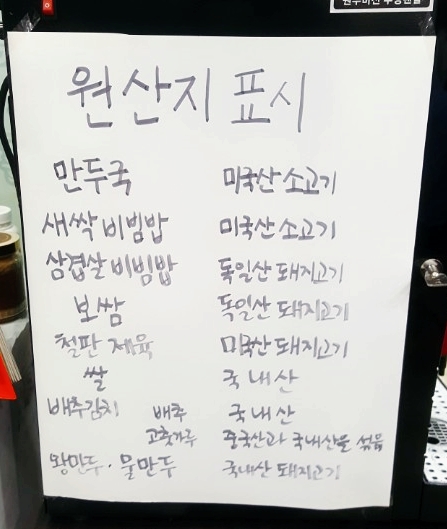 원산지 표시
만두국 미국산 소고기
새싹 비빔밥 미국산 소고기
삼겹살 비빔밥 독일산 돼지고기
보쌈 독일산 돼지고기
철판 제육 미국산 돼지고기
쌀 국내산
배추김치 배추 국내산
고춧가루 중국산과 국내산을 섞음
왕만두 · 물만두 국내산 돼지고기